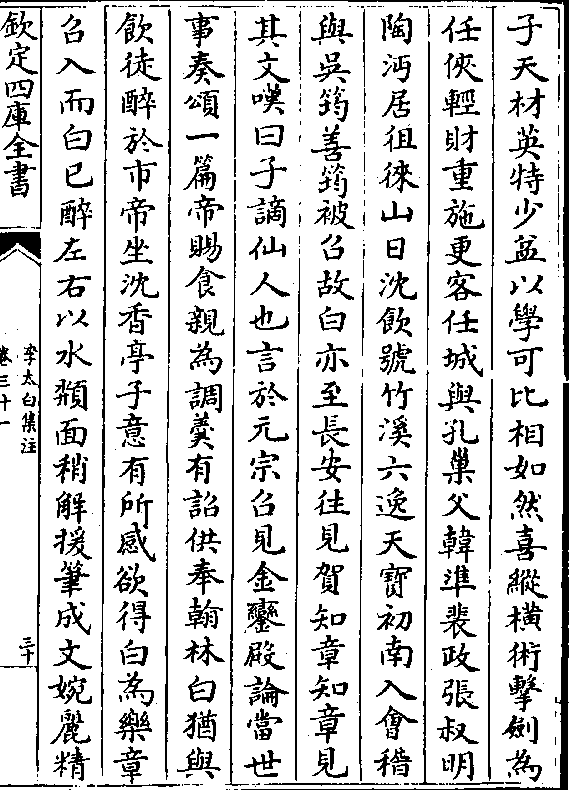 子天材英特少益以學可比相如然喜縱橫術擊劍為
任俠輕財重施更客任城與孔巢父韓準裴政張叔明
陶沔居徂徠山日沈飲號竹溪六逸天寳初南入會稽
與吳筠善筠被召故白亦至長安往見賀知章知章見
其文嘆曰子謫仙人也言於元宗召見金鑾殿論當世
事奏頌一篇帝賜食親為調羹有詔供奉翰林白猶與
飲徒醉於市帝坐沈香亭子意有所感欲得白為樂章
召入而白已醉左右以水頮面稍解援筆成文婉麗精
欽定四庫全書
李太白集注
卷三十一
三十